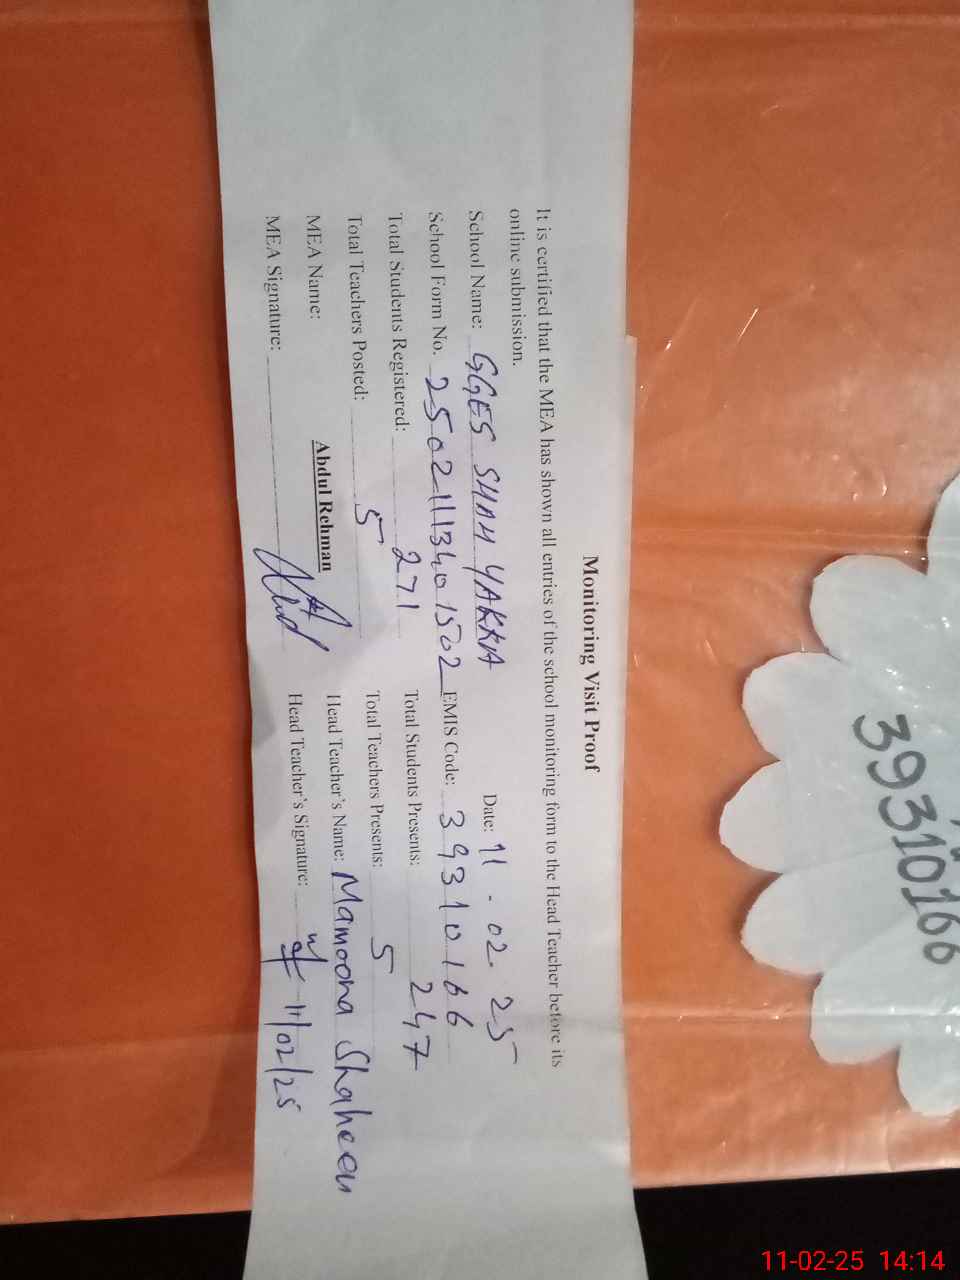 Monitoring Visit Proof
It is certified that the MEA has shown all entries of the school monitoring form to the Head Teacher before its
online submission.
School Name: GGES SHAH YAKKA Date: 11 - 02 - 25
School Form No. 2502111340 1502 EMIS Code: 39310166
Total Students Registered: 271 Total Students Presents: 247
Total Teachers Posted: 5 Total Teachers Presents: 5
MEA Name: Abdul Rehman Head Teacher's Name: Mamoona Shaheen
MEA Signature: Head Teacher's Signature: 11/02/25
39310166
11-02-25 14:14